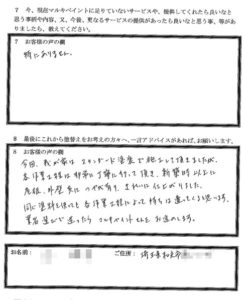 7 今、現在マルキペイントに足りていないサービスや、提供してくれたら良いなと
思う事柄や内容、又、今後、更なるサービスの提供があったら良いなと思う事、等が
ありましたら、教えてください。
7 お客様の声の欄
特にありません。
8 最後にこれから塗替えをお考えの方々へ、一言アドバイスがあれば、お願いします。
8 お客様の声の欄
今回、我が家は スタンダード塗装で施工して頂きましたが、
各作業工程は非常に丁寧に行って頂き、新築時以上に
屋根、外壁共に つやが有り、きれいに仕上がりました。
同じ塗料を使っても各作業工程によって持ちは違ってくると思います。
業者選びで迷ったら マルキペイントさんをお進めします。
お名前:
ご住所: 埼玉県